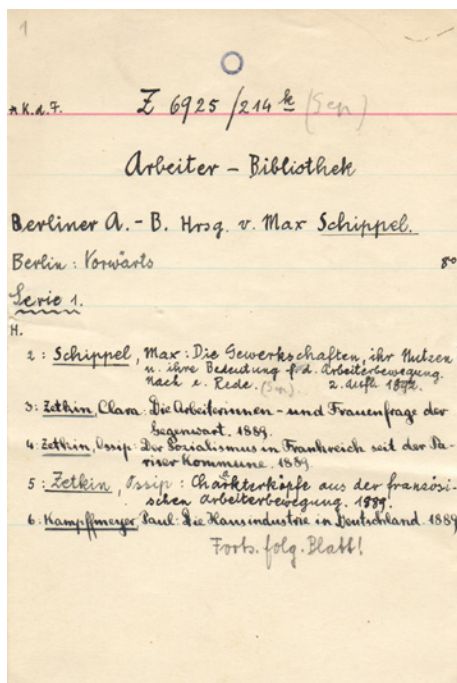 1
*K.d.F. Z 6925/214 k (Sep)
Arbeiter - Bibliothek
Berliner A. - B. Hrsg. v. Max Schippel.
Berlin: Vorwärts 8°
Serie 1.
H.
2: Schippel, Max: Die Gewerkschaften, ihr Nutzen
u. ihre Bedeutung f. d. Arbeiterbewegung.
Nach e. Rede. (Sep.) 2. Aufl. 1892.
3: Zetkin, Clara: Die Arbeiterinnen- und Frauenfrage der
Gegenwart. 1889.
4: Zetkin, Ossip: Der Sozialismus in Frankreich seit der Pa-
riser Kommune. 1889.
5: Zetkin, Ossip: Charkterköpfe aus der französi-
schen Arbeiterbewegung. 1889.
6: Kampffmeyer, Paul: Die Hausindustrie in Deutschland. 1889
Forts. folg. Blatt!